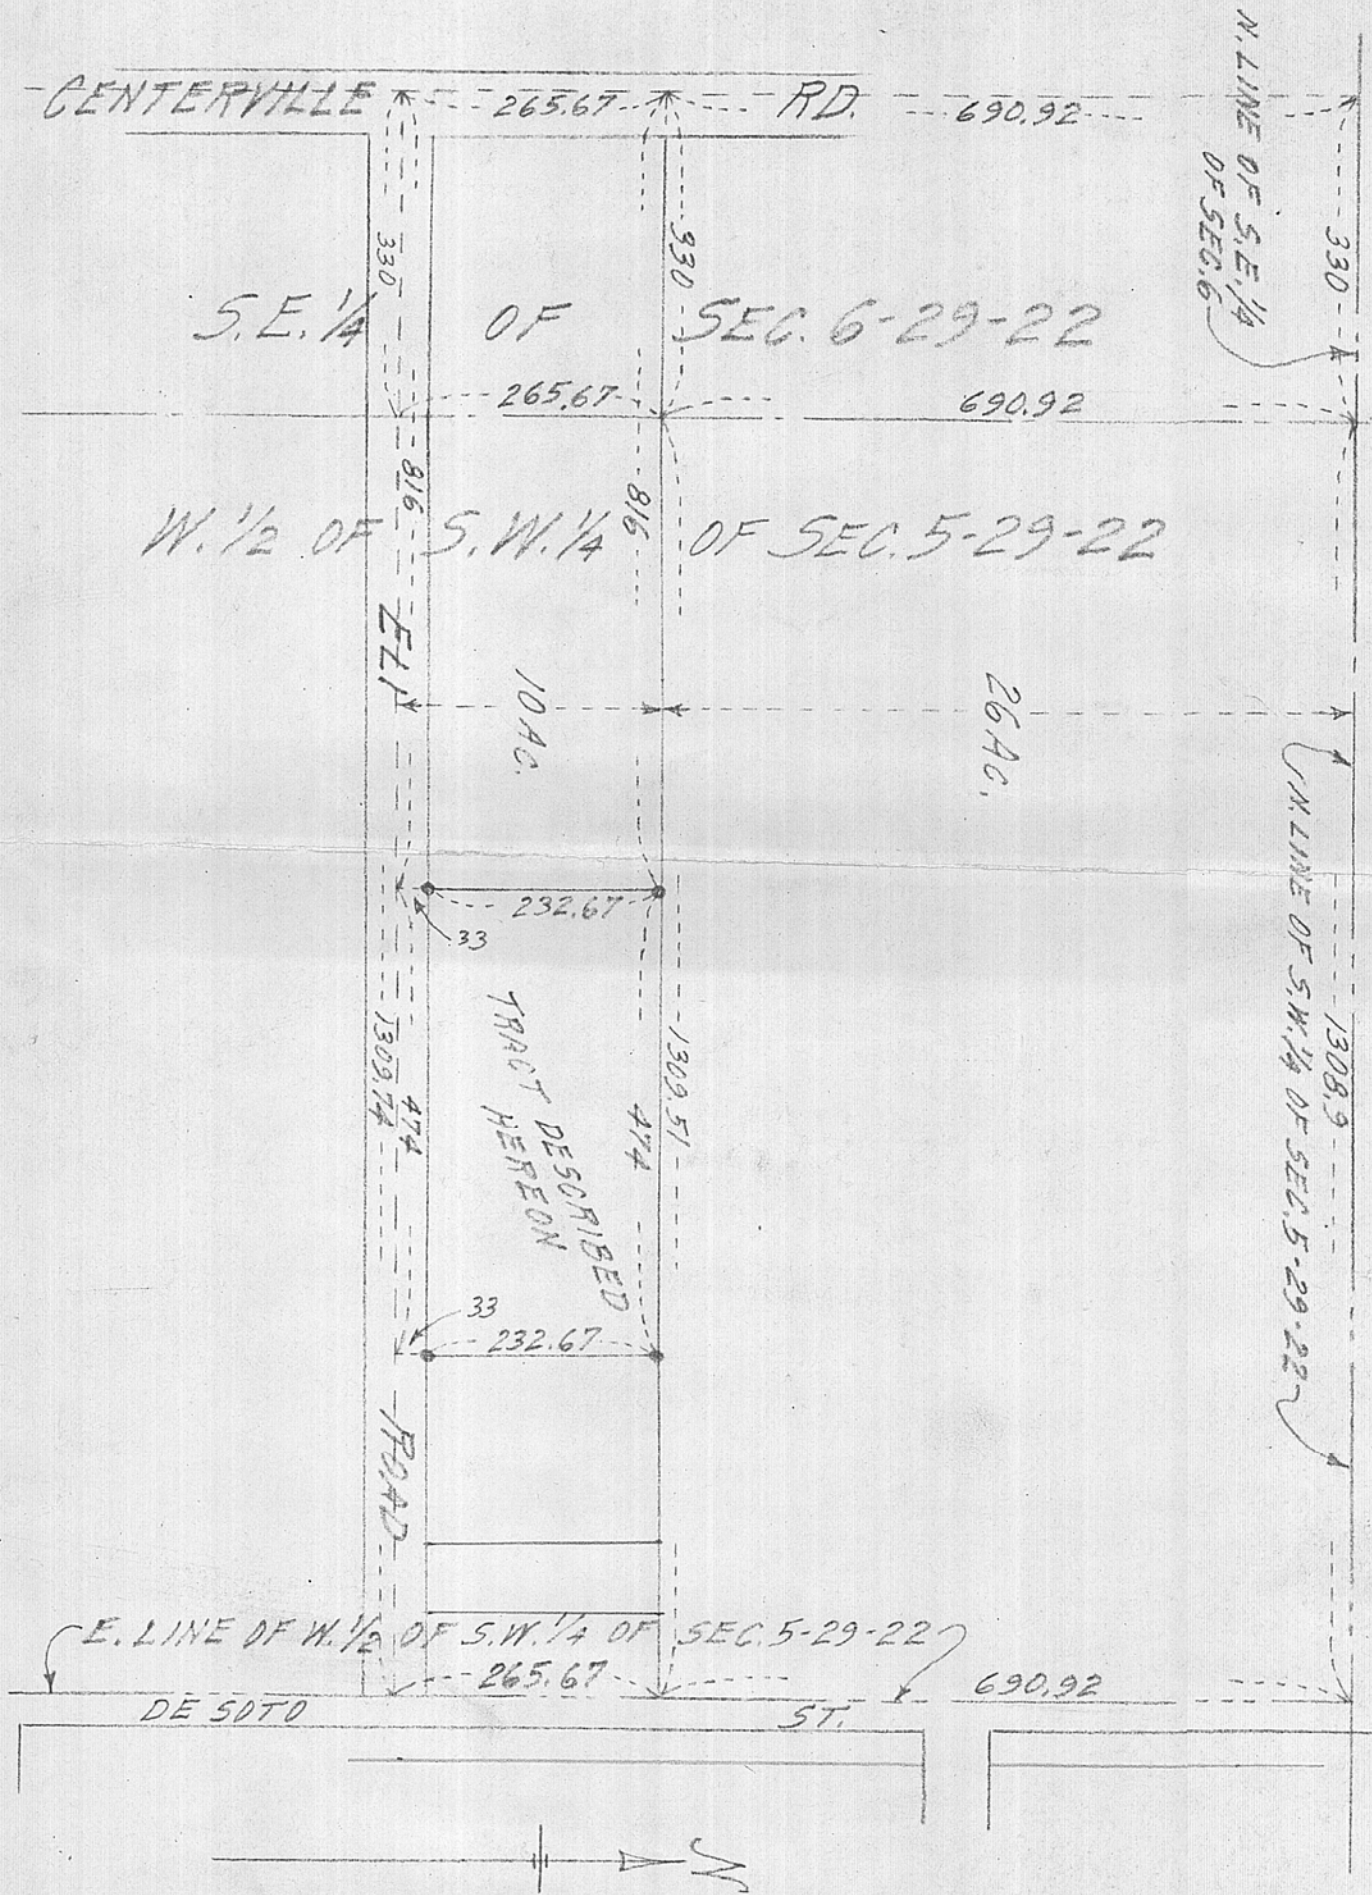 CENTERVILLE 265.67 RD. 690.92
N. LINE OF S.E. 1/4
OF SEC. 6
330
330
330
S.E. 1/4 OF SEC. 6-29-22
265.67 690.92
816
816
W. 1/2 OF S.W. 1/4 OF SEC. 5-29-22
ELI
10 AC.
26 AC.
N. LINE OF S.W. 1/4 OF SEC. 5-29-22
1308.9
232.67
33
TRACT DESCRIBED
HEREON
1309.74
474
474
1309.51
33
232.67
ROAD
E. LINE OF W. 1/2 OF S.W. 1/4 OF SEC. 5-29-22
265.67 690.92
DE SOTO ST.
N